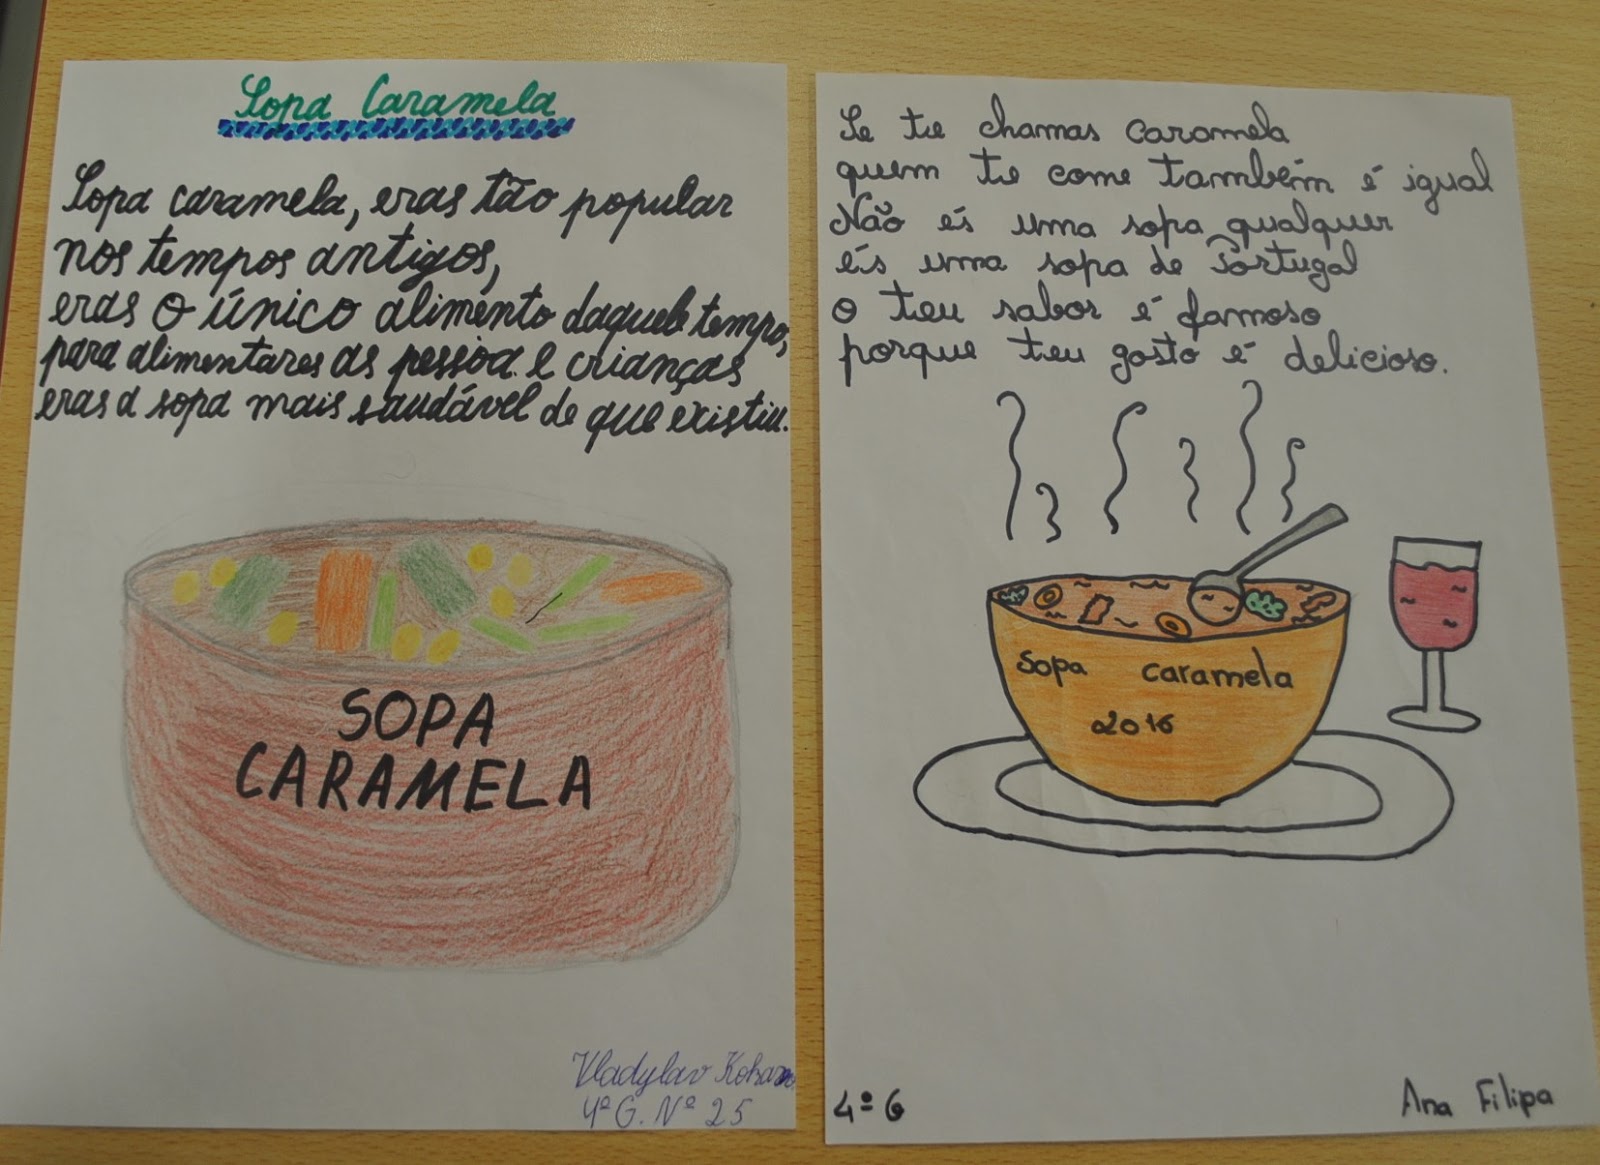 Sopa Caramela
Sopa caramela, eras tão popular
nos tempos antigos,
eras o único alimento daquele tempo,
para alimentares as pessoa. e crianças
eras a sopa mais saudável de que existiu.
SOPA
CARAMELA
Vladyslav
4º G. Nº 25
Se te chamas caramela
quem te come também é igual
Não és uma sopa qualquer
és uma sopa de Portugal
o teu sabor é famoso
porque teu gosto é delicioso.
Sopa caramela
2016
4º G
Ana Filipa